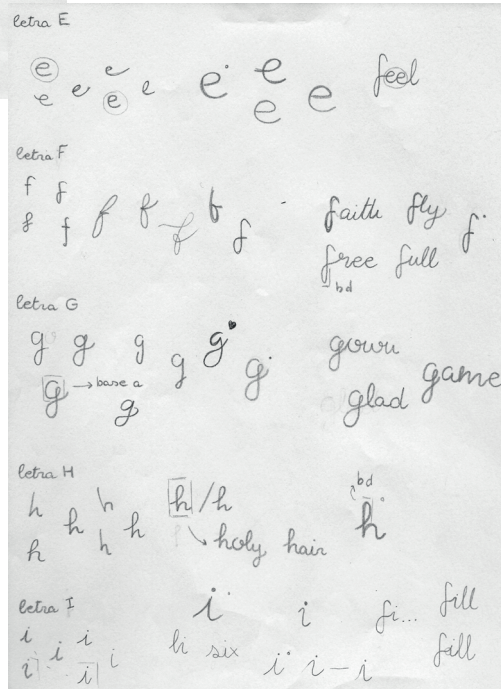 letra E
e e e e e e e e e e feel
letra F
f f f f f f f f f f faith fly f
free full
bd
letra G
g g g g g g gown
g → base a g glad game
letra H
h h h h h h h / h bd
h
→ holy hair
letra I
i i i i i i i fi... fill
li six i i – i fill